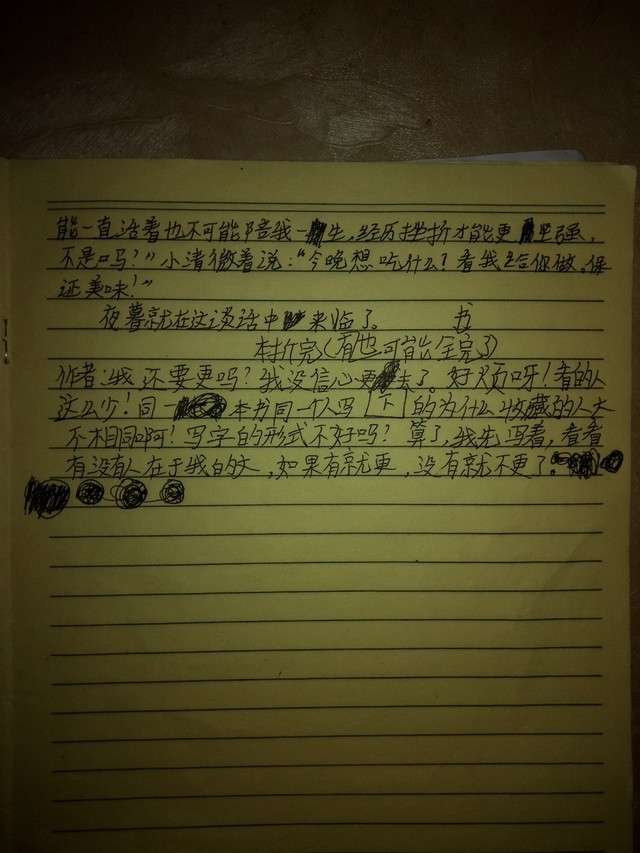 能一直活着也不可能陪我一生,经历挫折才能更坚强,
不是吗?”小清微着说:“今晚想吃什么?看我给你做。保
证美味!”
夜暮就在这谈话中来临了。
书
本折完(有也可能全完了)
作者:我还要更吗?我没信心更去了。好烦呀!看的人
这么少!同一本书同一个人写下的为什么收藏的人大
不相同啊!写字的形式不好吗?算了,我先写着,看看
有没有人在于我的文,如果有就更,没有就不更了。